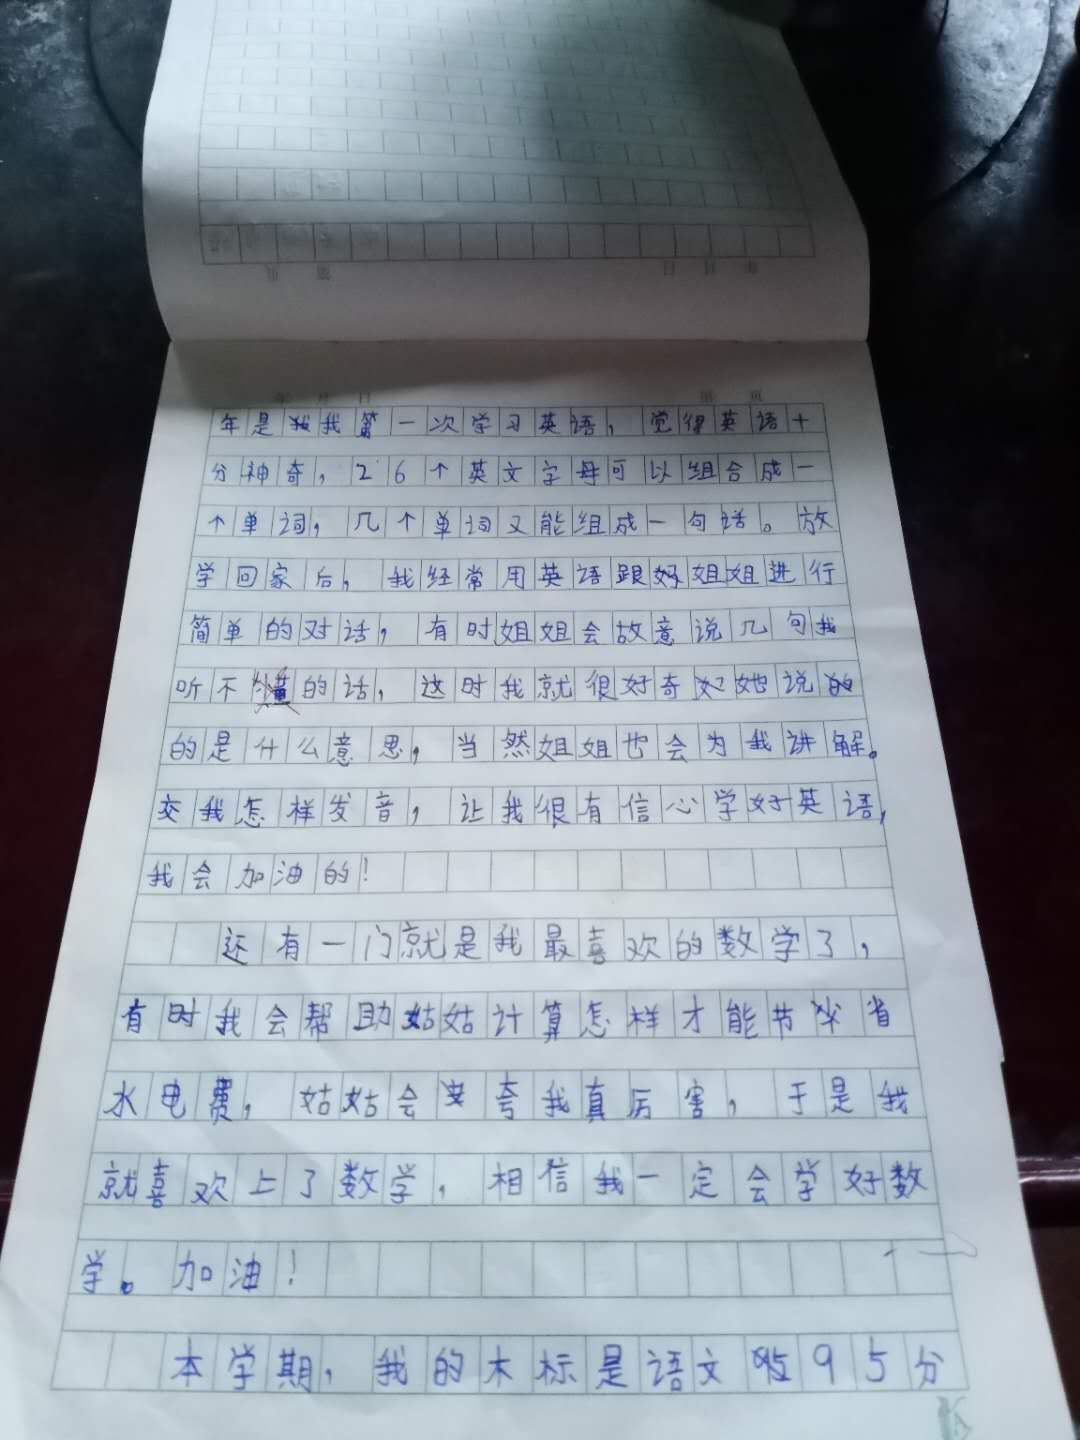 年 月 日
第 页
年是我第一次学习英语，觉得英语十
分神奇，26个英文字母可以组合成一
个单词，几个单词又能组成一句话。放
学回家后，我经常用英语跟好姐姐进行
简单的对话，有时姐姐会故意说几句我
听不懂的话，这时我就很好奇她说
的是什么意思，当然姐姐也会为我讲解。
交我怎样发音，让我很有信心学好英语，
我会加油的！
还有一门就是我最喜欢的数学了，
有时我会帮助姑姑计算怎样才能节省
水电费，姑姑会夸我真厉害，于是我
就喜欢上了数学，相信我一定会学好数
学。加油！
本学期，我的木标是语文95分